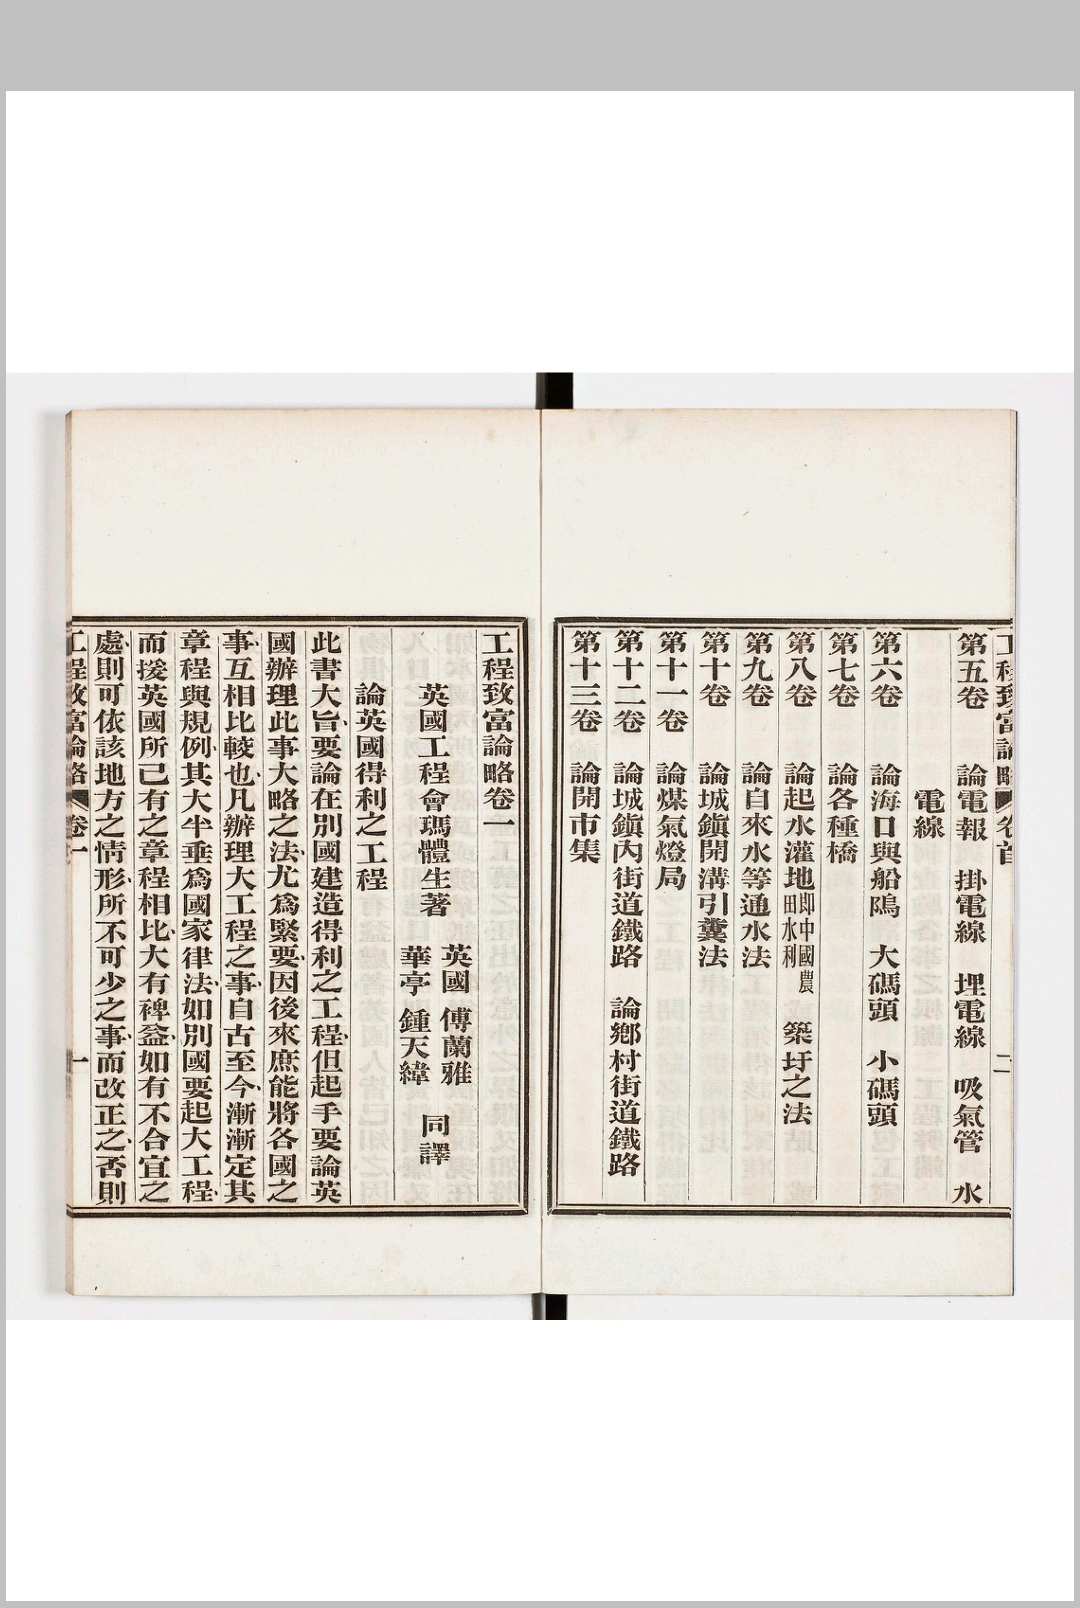 工程致富論略 卷首 二
第五卷 論電報 掛電線 埋電線 吸氣管 水
電線
第六卷 論海口與船隖 大碼頭 小碼頭
第七卷 論各種橋
第八卷 論起水灌地即中國農田水利 築圩之法
第九卷 論自來水等通水法
第十卷 論城鎭開溝引糞法
第十一卷 論煤氣燈局
第十二卷 論城鎭內街道鐵路 論鄉村街道鐵路
第十三卷 論開市集
工程致富論略卷一
英國工程會瑪體生著
英國 傅蘭雅
華亭 鍾天緯
同譯
論英國得利之工程
此書大旨、要論在別國建造得利之工程、但起手要論英
國辦理此事大略之法、尤爲緊要、因後來庶能將各國之
事、互相比較也、凡辦理大工程之事、自古至今、漸漸定其
章程與規例、其大半垂爲國家律法、如別國要起大工程、
而援英國所已有之章程相比、大有裨益、如有不合宜之
處、則可依該地方之情形、所不可少之事、而改正之、否則
工程致富論略 卷一 一